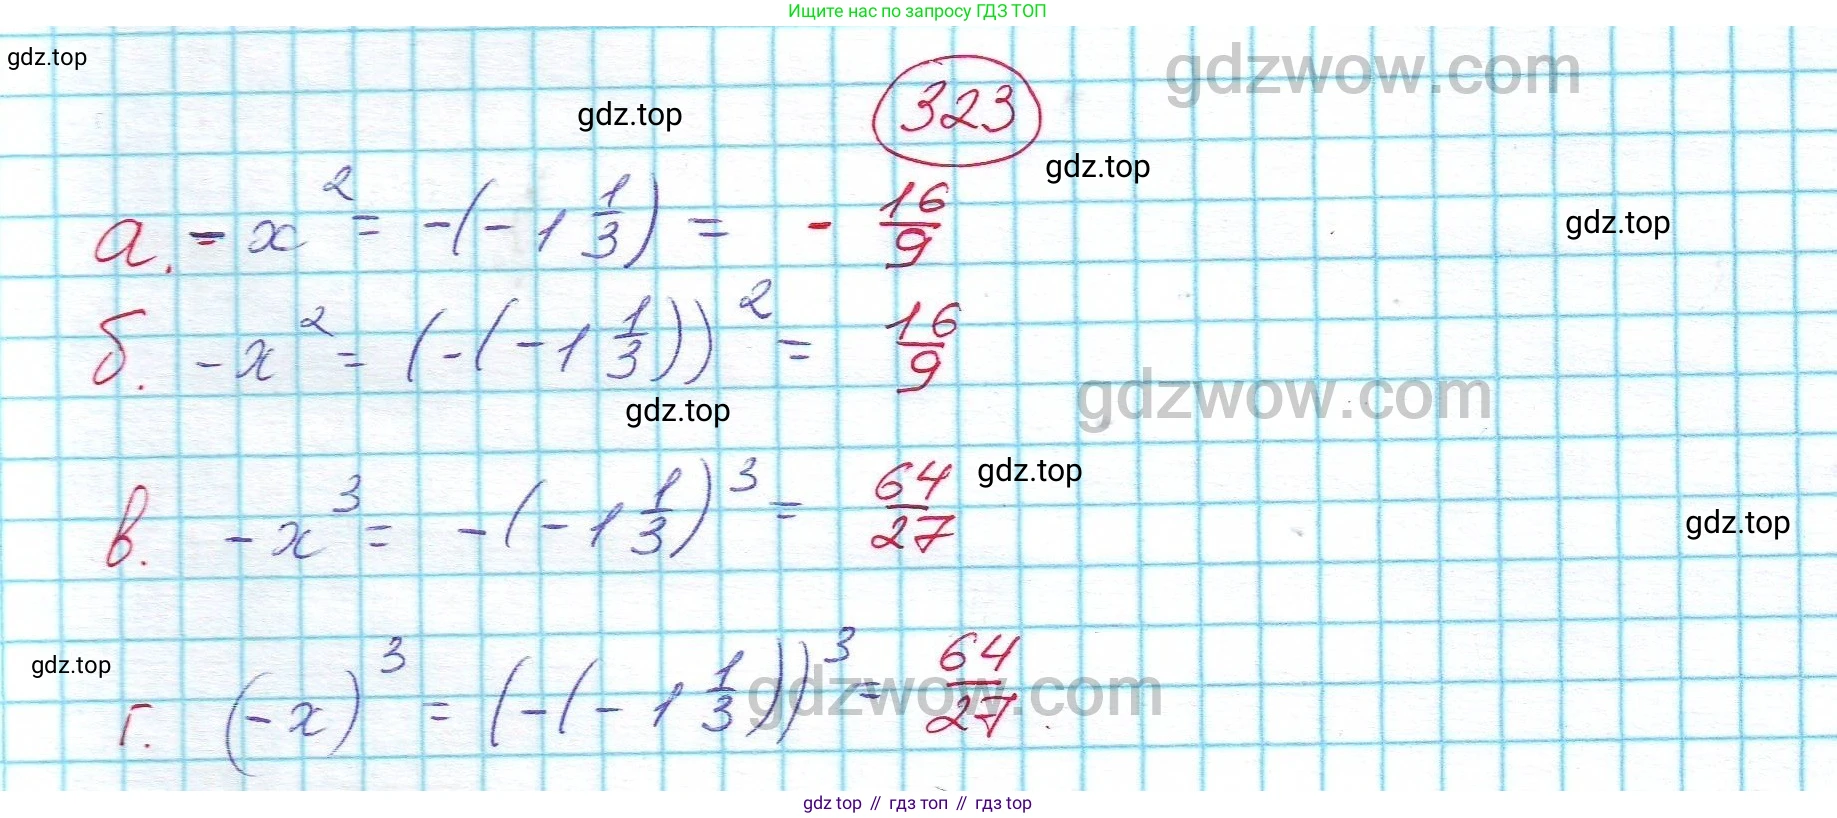 Ищите нас по запросу ГДЗ ТОП
gdz.top
gdzwow.com
323
gdz.top
gdz.top
а. -x² = -(-1 1/3) = - 16/9
gdz.top
б. -x² = (-(-1 1/3))² = 16/9
gdzwow.com
gdz.top
в. -x³ = -(-1 1/3)³ = 64/27
gdz.top
gdz.top
gdz.top
г. (-x)³ = (-(-1 1/3))³ = 64/27.
gdzwow.com
gdz top // гдз топ // гдз top